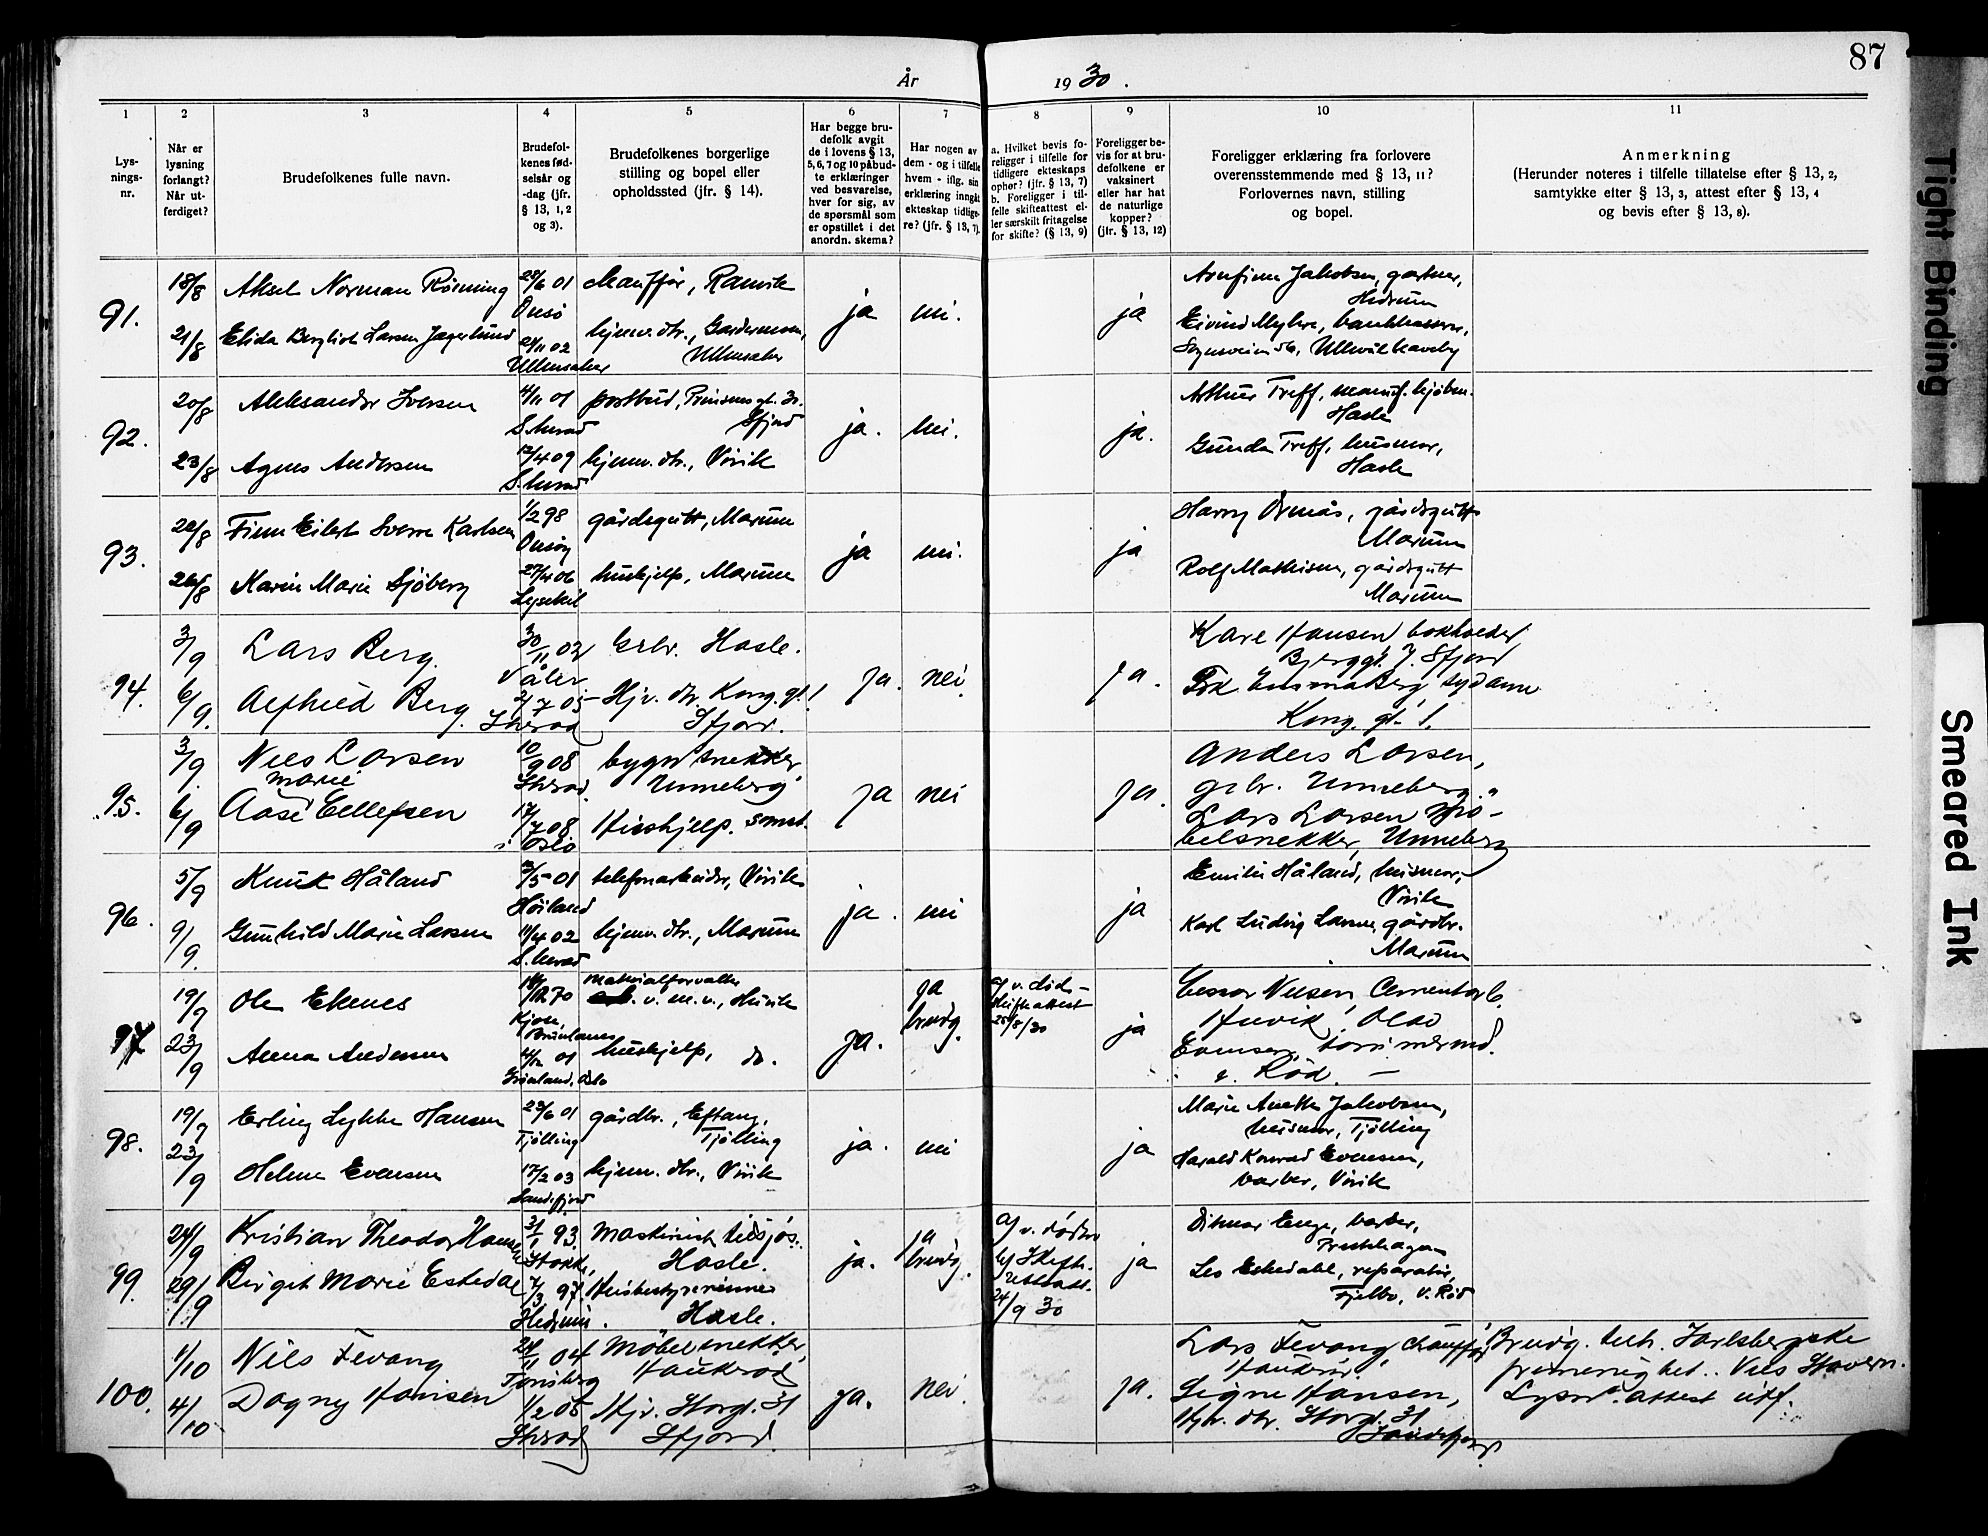 87
År 1930.
1 2 3 4 5 6 7 8 9 10 11
Lys-
nings-
nr.
Når er
lysning
forlangt?
Når ut-
ferdiget?
Brudefolkenes fulle navn.
Brudefol-
kenes fød-
selsår og
-dag (jfr.
§ 13, 1, 2
og 3).
Brudefolkenes borgerlige
stilling og bopel eller
opholdssted (jfr. § 14).
Har begge bru-
defolk avgit
de i lovens § 13,
5, 6, 7 og 10 påbud-
te erklæringer
ved besvarelse,
hver for sig, av
de spørsmål som
er opstillet i det
anordn. skema?
Har nogen av
dem - og i tilfelle
hvem - iflg. sin
erklæring inngåt
ekteskap tidlige-
re? (jfr. § 13, 7).
a. Hvilket bevis fo-
religger i tilfelle for
tidligere ekteskaps
ophør? (jfr. § 13, 7)
b. Foreligger i til-
felle skifteattest el-
ler særskilt fritagelse
for skifte? (§ 13, 9)
Foreligger be-
vis for at bru-
defolkene er
vaksinert
eller har hat
de naturlige
kopper?
(jfr. § 13, 12)
Foreligger erklæring fra forlovere
overensstemmende med § 13, 11?
Forlovernes navn, stilling
og bopel.
Anmerkning
(Herunder noteres i tilfelle tillatelse efter § 13, 2,
samtykke efter § 13, 3, attest efter § 13, 4
og bevis efter § 13, 8).
91.
18/8 Aksel Norman Rösning 28/6 01 chauffør, Ranvik
Onsö
21/8 Elida Bergliot Larsen Jagerlund 21/11 02 hjemv. dtr., Gardermoen,
Ullensaker Ullensaker
ja nei. ja
Arnfinn Jakobsen, gartner,
Hedrum
Eivind Myhre, bankkasserer,
Sognsveien 56, Ullevål Haveby
92.
20/8 Aleksander Iversen 4/11 01 postbud, Prinsensgt. 30.
S.herad Sfjord
23/8 Agnes Andersen 12/4 09 hjemv. dtr., Virik
S.herad
ja. nei. ja.
Arthur Treff, manuf. kjøbm.
Hasle
Gunda Treff, husmor,
Hasle
93.
20/8 Finn Eilert Sverre Karlsen 1/2 98 gårdsgutt, Marum
Onsöy
26/8 Karin Marie Sjöberg 27/4 06 hushjelp, Marum
Lysekil
ja nei. ja
Harry Ormås, gårdsgutt
Marum
Rolf Mathisen, gårdsgutt
Marum
94.
3/9 Lars Berg. 30/11 02 Grbr. Hasle.
Våler
6/9. Alfhild Berg. 2/7 05 Hjv. dtr. Kong. gt. 1
Sherad Sfjord.
ja. nei. ja.
Kare Hansen bokholder
Bjerggt. 7. Sfjord
Frk Emma Berg sydame
Kong. gt. 1.
95.
3/9. Nils Larsen 10/9 08 bygn snekker,
Sherad. Unneberg
marie
6/9 Aase Ellefsen 17/7 08 Hushjelp. samst.
i Oslo
ja nei ja.
Anders Larsen,
grbr. Unneberg.
Lars Larsen Mö-
belsnekker, Unneberg
96.
5/9 Knut Håland 3/5 01 telefonarbeider, Virik
Höiland
9/9. Gunhild Marie Larsen 11/4 02 hjemv. dtr., Marum
S.herad
ja. nei ja
Emilie Håland, husmor,
Virik
Karl Ludvig Larsen, gårdbr.
Marum
97
19/9 Ole Ekenes 18/12 70 materialforvalter
v. m. v., Huvik
Kjose,
Brunlanes
23/9 Anna Andersen 4/12 01 hushjelp, do.
Grönland, Oslo
ja. ja brudg.
a) v. död-
skifteattest
25/8/30
ja
Nilsen, Cementarb.
Huvik, Olav
Evensen, tømmermd.
v. Röd. —
98.
19/9 Erling Lykke Hansen 23/6 01 gårdbr., Eftang,
Tjölling Tjölling
23/9 Helene Evensen 17/2 03 hjemv. dtr., Virik
Sandefjord
ja. nei ja
Marie Anette Jakobsen,
husmor, Tjölling
Harald Konrad Evensen,
barber, Virik
99.
24/9 Kristian Theodor Hansen 31/1 93. Maskinist tilsjøs.
Stokke, Hasle.
29/9 Birgit Marie Eskedal 7/3 97. Husbestyrerinne
Hedrum. Hasle.
ja. ja brudg.
a) v. dødsa
b) Skifte-
rettsatt.
24/9 30
ja
Ditmar Enge, barber,
Preståsen
Eskedahl, reparatör,
Fjelbo, v. Röd
100.
1/10 Nils Fevang 24/11 04 Möbelsnekker,
Tønsberg Haukerød
4/10 Dagny Hansen 1/2 05 Hjv. Storgt. 31
Sherad Sfjord.
ja. nei. ja.
Lars Fevang Chauffør
Haukerød
Signe Hansen,
Hjv. dtr. Storgt. 31
Sandefjord
Brudg. tilh. Jarlsbergske
frimenighet.. Nils Havern.
Lysn. attest utf.
Tight Binding
Smeared Ink